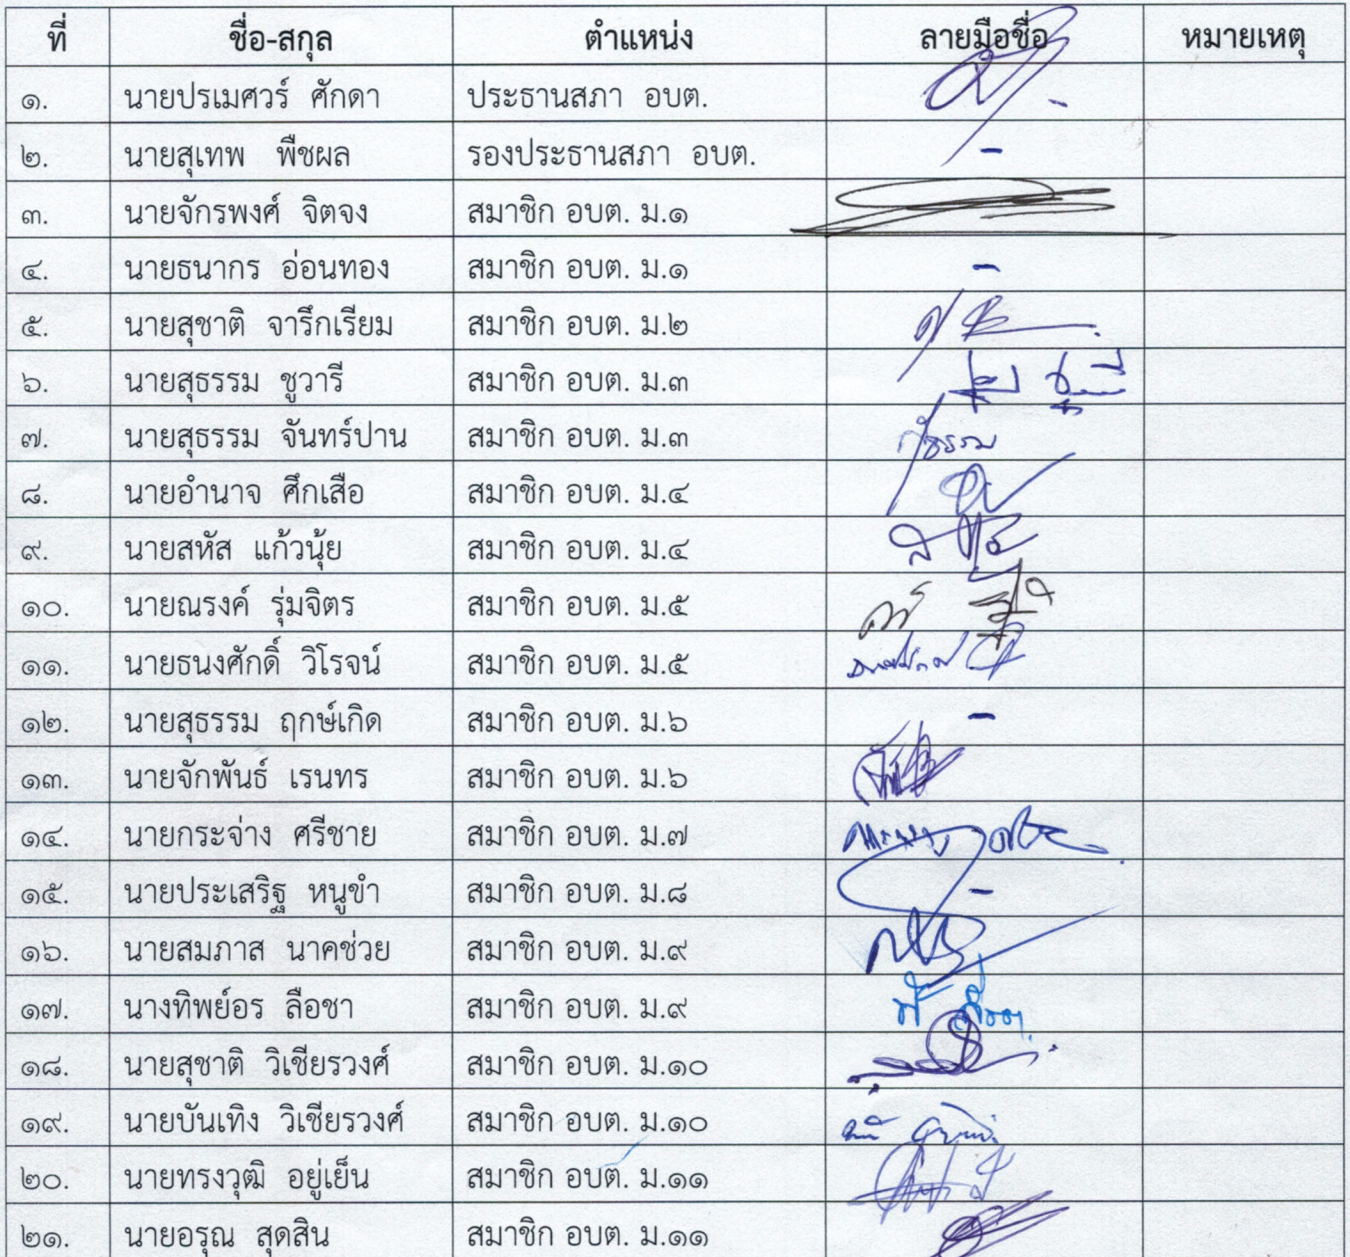 ที่ ชื่อ-สกุล ตำแหน่ง ลายมือชื่อ หมายเหตุ
๑. นายปรเมศวร์ ศักดา ประธานสภา อบต.
๒. นายสุเทพ พืชผล รองประธานสภา อบต. -
๓. นายจักรพงศ์ จิตจง สมาชิก อบต. ม.๑
๔. นายธนากร อ่อนทอง สมาชิก อบต. ม.๑ -
๕. นายสุชาติ จารึกเรียม สมาชิก อบต. ม.๒
๖. นายสุธรรม ชูวารี สมาชิก อบต. ม.๓
๗. นายสุธรรม จันทร์ปาน สมาชิก อบต. ม.๓ สุธรรม
๘. นายอำนาจ ศึกเสือ สมาชิก อบต. ม.๔
๙. นายสหัส แก้วนุ้ย สมาชิก อบต. ม.๔
๑๐. นายณรงค์ รุ่มจิตร สมาชิก อบต. ม.๕
๑๑. นายธนงศักดิ์ วิโรจน์ สมาชิก อบต. ม.๕
๑๒. นายสุธรรม ฤกษ์เกิด สมาชิก อบต. ม.๖ -
๑๓. นายจักพันธ์ เรนทร สมาชิก อบต. ม.๖
๑๔. นายกระจ่าง ศรีชาย สมาชิก อบต. ม.๗
๑๕. นายประเสริฐ หนูขำ สมาชิก อบต. ม.๘ -
๑๖. นายสมภาส นาคช่วย สมาชิก อบต. ม.๙
๑๗. นางทิพย์อร ลือชา สมาชิก อบต. ม.๙
๑๘. นายสุชาติ วิเชียรวงศ์ สมาชิก อบต. ม.๑๐
๑๙. นายบันเทิง วิเชียรวงศ์ สมาชิก อบต. ม.๑๐
๒๐. นายทรงวุฒิ อยู่เย็น สมาชิก อบต. ม.๑๑
๒๑. นายอรุณ สุดสิน สมาชิก อบต. ม.๑๑